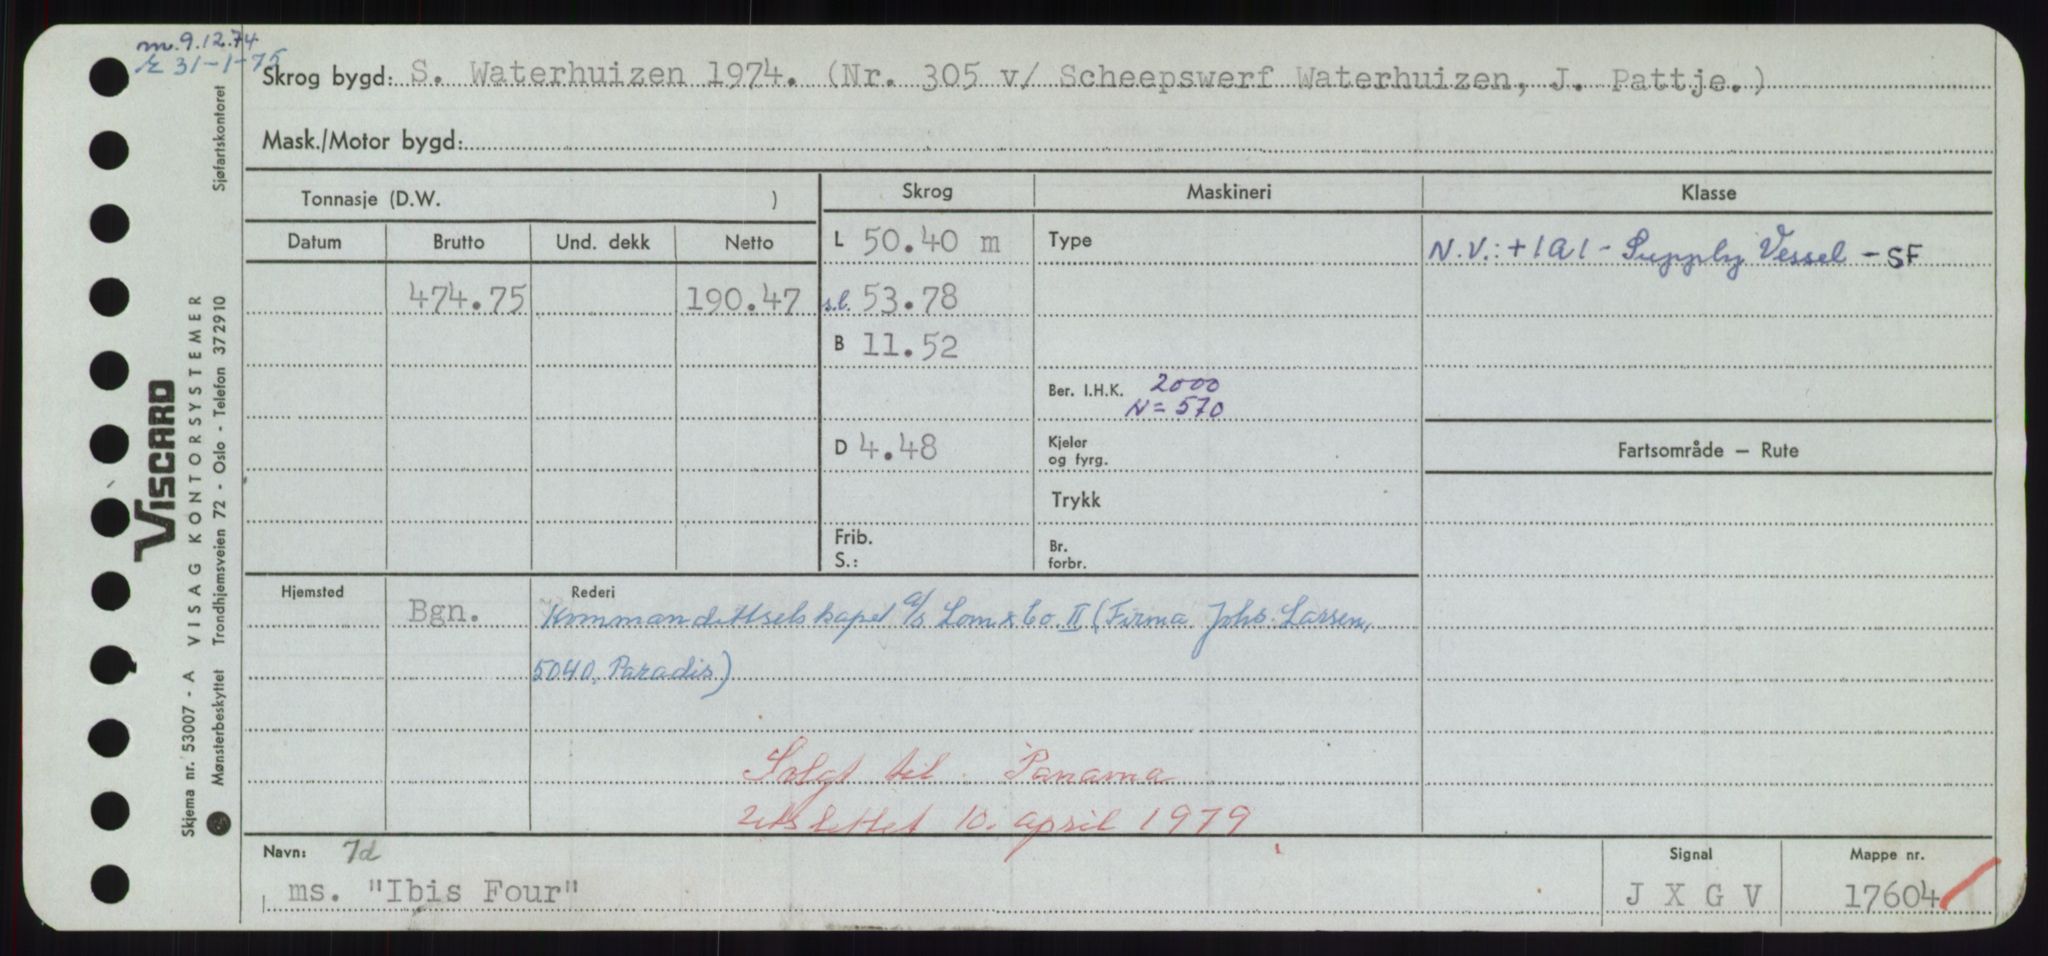 m. 9.12.74
r 31-1-75
Skrog bygd: S. Waterhuizen 1974. (Nr. 305 v/ Scheepswerf Waterhuizen, J. Pattje.)
Mask./Motor bygd:
Tonnasje (D.W. )
Skrog
Maskineri
Klasse
Datum Brutto Und. dekk Netto
L 50.40 m
Type
N.V.: +1A1 - Supply Vessel - SF
474.75 190.47
s.l. 53.78
B 11.52
Ber. I.H.K. 2000
N = 570
D 4.48
Kjeler
og fyrg.
Fartsområde — Rute
Trykk
Frib.
S.:
Br.
forbr.
Hjemsted
Bgn.
Rederi
Kommandittselskapet a/s Lom & Co. II (Firma Johs. Larsen,
5040, Paradis)
Solgt til Panama
Utslettet 10. april 1979
Navn: 7d
ms. "Ibis Four"
Signal
J X G V
Mappe nr.
17604
Skjema nr. 53007 - A VISAG KONTORSYSTEMER
VISCARD
Mønsterbeskyttet Trondhjemsveien 72 - Oslo - Telefon 372910 Sjøfartskontoret